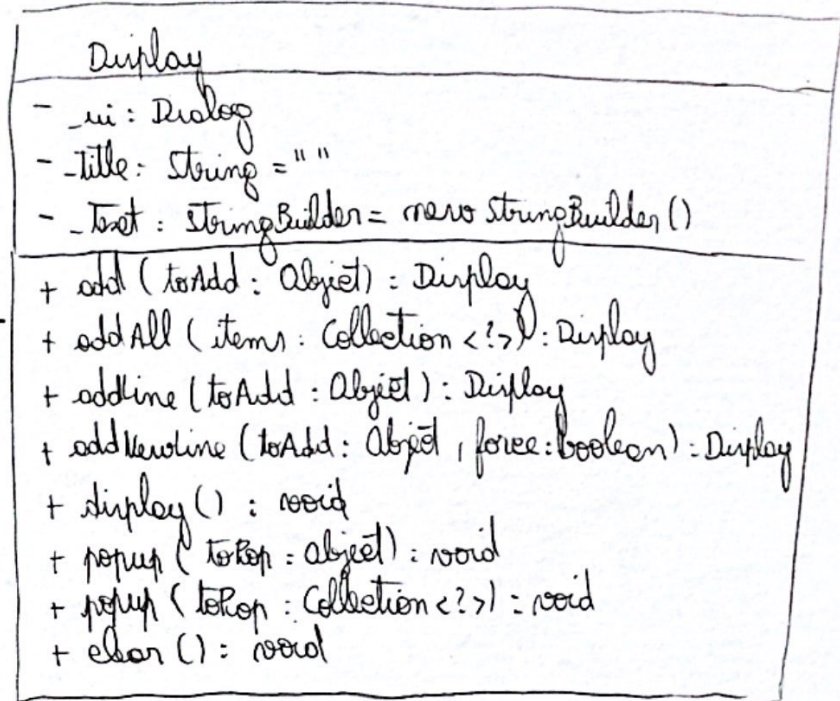 Display
- _ui : Dialog
- _title : String = " "
- _text : StringBuilder = new StringBuilder()
+ add (toAdd : Object) : Display
+ addAll (items : Collection <?>) : Display
+ addLine (toAdd : Object) : Display
+ addNewLine (toAdd : Object, force : boolean) : Display
+ display() : void
+ popup (toPop : Object) : void
+ popup (toPop : Collection <?>) : void
+ clear () : void